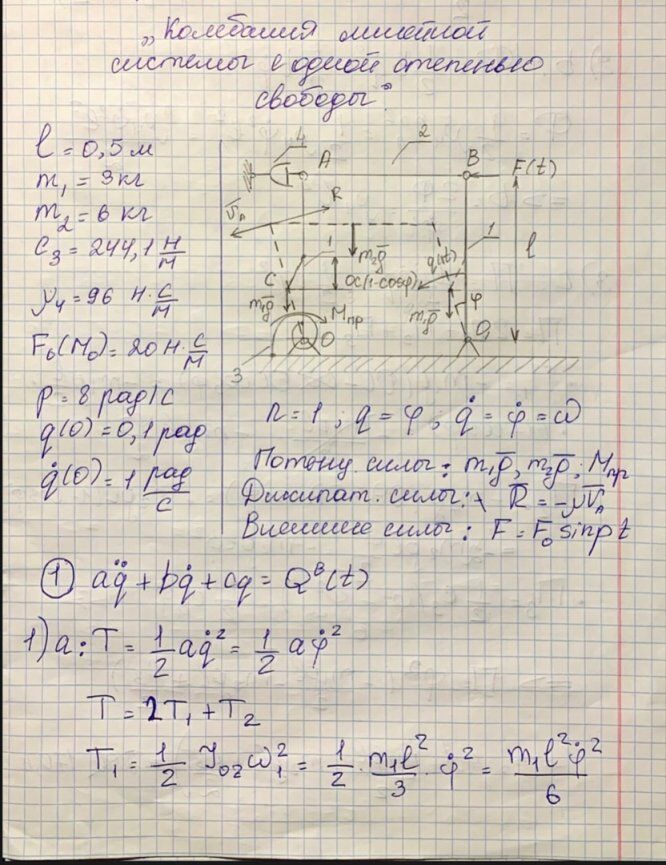 „Колебания линейной
системы с одной степенью
свободы".
l = 0,5 м
m₁ = 3 кг
m₂ = 6 кг
C₃ = 244,1 Н/м
μ₄ = 96 Н·с/м
F₀(M₀) = 20 Н·с/м
p = 8 рад/с
q(0) = 0,1 рад
q̇(0) = 1 рад/с
4 A 2 B F(t)
V̅ₐ R
1 1 l
m₂g̅ q(t)
C OC(1-cosφ) φ
m₁g̅ Mпр m₁g̅
O O₁
3
n = 1 ; q = φ ; q̇ = φ̇ = ω
Потенц. силы: m₁g̅, m₂g̅; Mпр
Диссипат. силы: R̅ = -μV̅ₐ
Внешние силы: F = F₀ sinpt
① aq̈ + bq̇ + cq = Qᴮ(t)
1) a: T = 1/2 aq̇² = 1/2 aφ̇²
T = 2T₁ + T₂
T₁ = 1/2 J₀z ω₁² = 1/2 · m₁l²/3 · φ̇² = m₁l²φ̇²/6